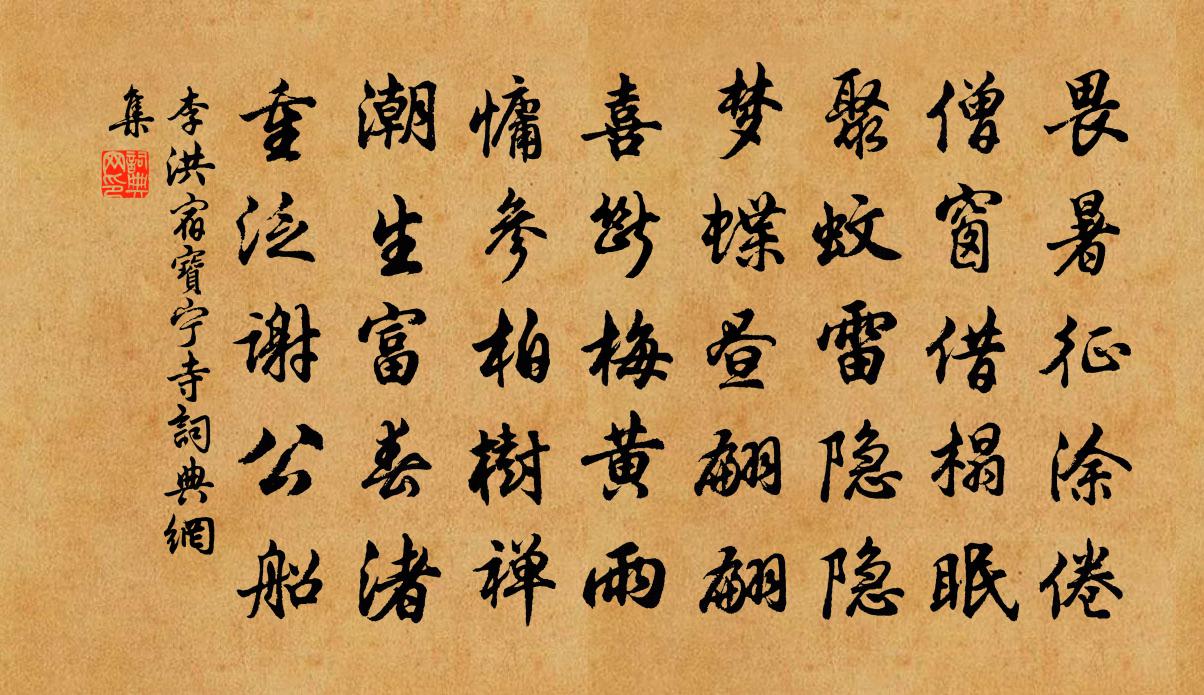 畏暑征涂倦
僧窗借榻眠
聚蚊雷隐隐
梦蝶昼翩翩
喜斷梅黄雨
慵參柏樹禅
潮生富春渚
重泛谢公船
李洪宿寶宁寺詞典網
集
詞典
网印